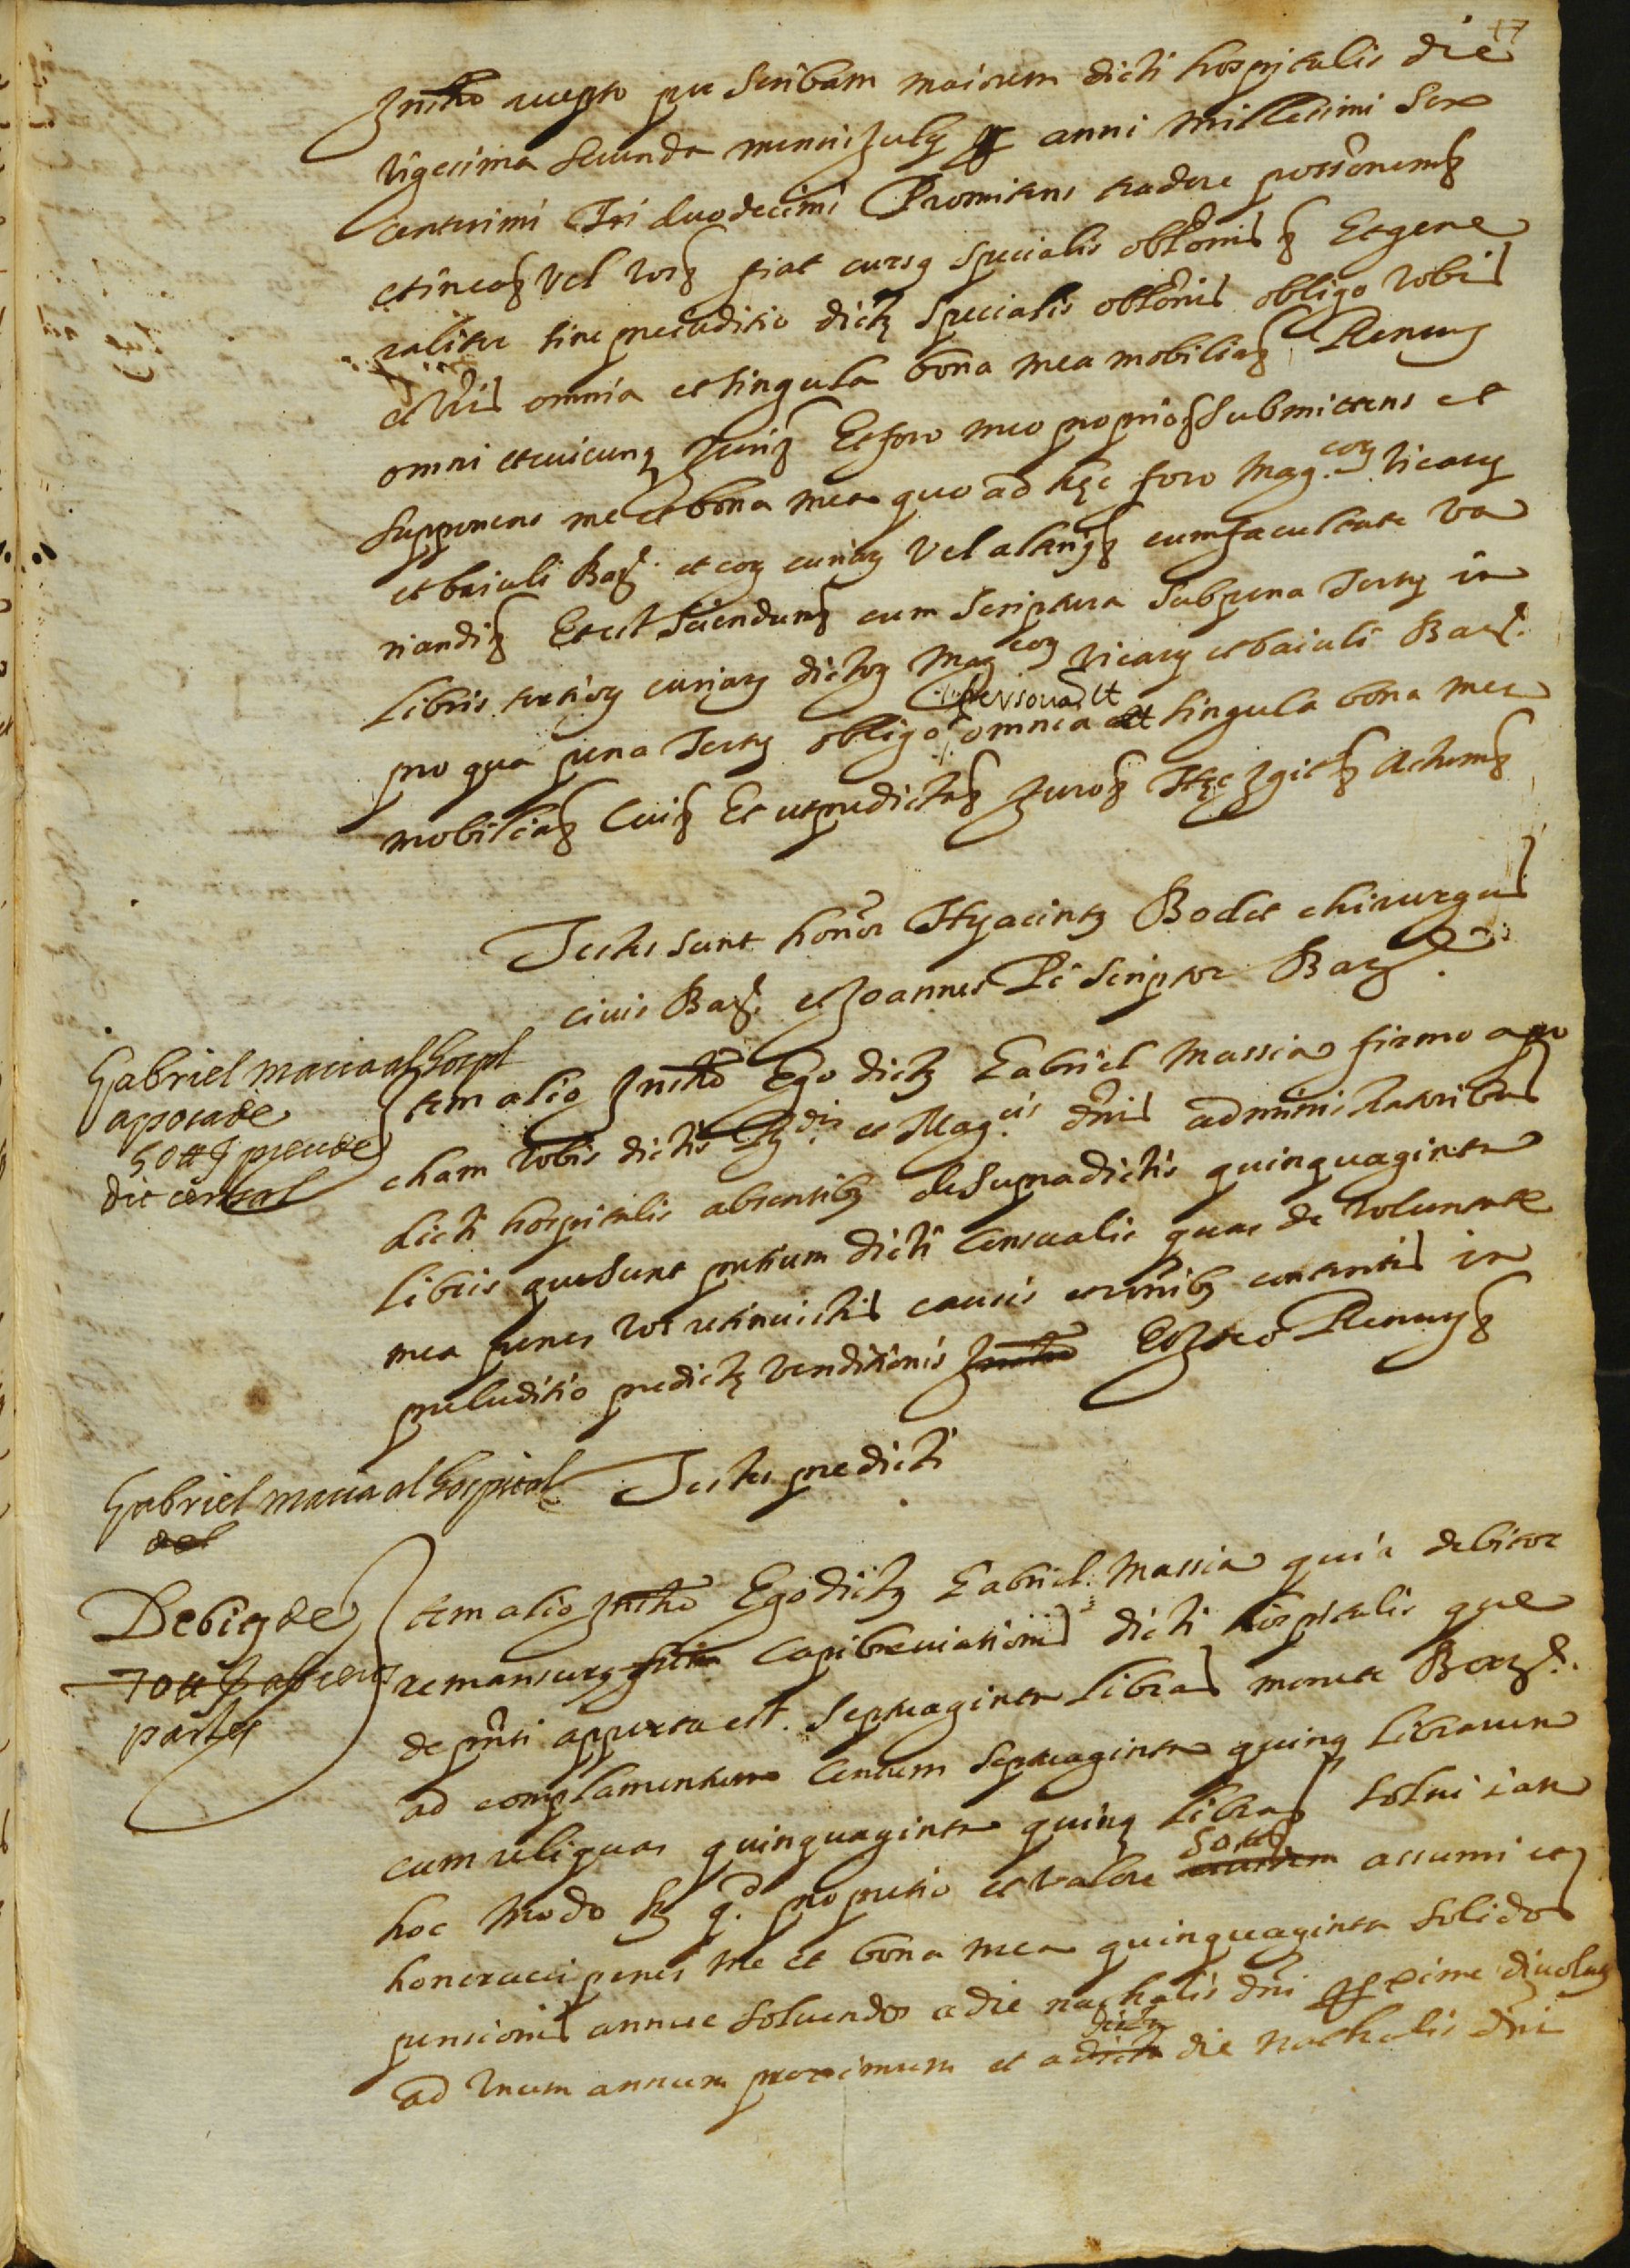 17
Instro recepto per Scribam maiorem dicti hospitalis die
Vigecima Secunda mensis July anni Millesimi Sex
centesimi duodecimi Promitens tradere possonemq
et in eaq vel vosq fiat cursq specialis obltonis q Et gene
raliter sine preiuditio dictę specialis obltonis obligo vobis
et vris omnia et singula bona mea mobiliaq Renuns
omni et cuicunq Juriq Et foro meo proprioq Submittens et
Supponens me et bona mea quo ad hęc foro Mag.cor vicarij
et baiuli Barq. et eor curiar vel alteriusq cum facultate va
riandiq Et est Sciendumq cum Scriptura Sub pena Tertij in
Libris tertior curiar dictor Mag cor vicarij et baiuli Barq.
personã et
pro qua pena Tertij obligo omnia et singula bona mea
mobiliaq Cuiq Et ut predictaq Juroq Hęc Igitq Actumq
Testes sunt honor Hyacintq Bodet chirurgus
civis Barq. et Joannes Pi Scriptor Barq.
Gabriel macia al hospl
apocade
50 ₶ preu de
dit censal
Item alio Instro Ego dictq Gabriel Massia firmo apo
cham vobis dictis Rdis et Mag.cis dnis administratoribus
dicti hospitalis absentibq de Supradictis quinquaginta
libris que Sunt pretium dicti Censualis quas de voluntate
mea penes vos retinuistis causis et ronibq contentis in
preluditio predictę venditionis Instro Et Ideo Renunsq
Testes predicti
Gabriel macia al hospital
del
Debit de
70 ₶ ab ceu
partes
Item alio Instro Ego dictq Gabriel Massia quia debitor
remansurq Capibreviationis dicti hospitalis que
de pnti apperta est. Septuaginta libras monete Barq.
ad complamentum Centum Septuaginta quinq librarum
cum reliquas quinquaginta quinq libras Solui ian
50 ₶
hoc Modo Sq q. pro pretio et valore earum assumi et
honeravi penes me et bona mea quinquaginta Solidos
pensionis annue soluendos a die nathalis dni proxime divolut
dicta
ad unum annum proximum et a dicta die nathalis dni